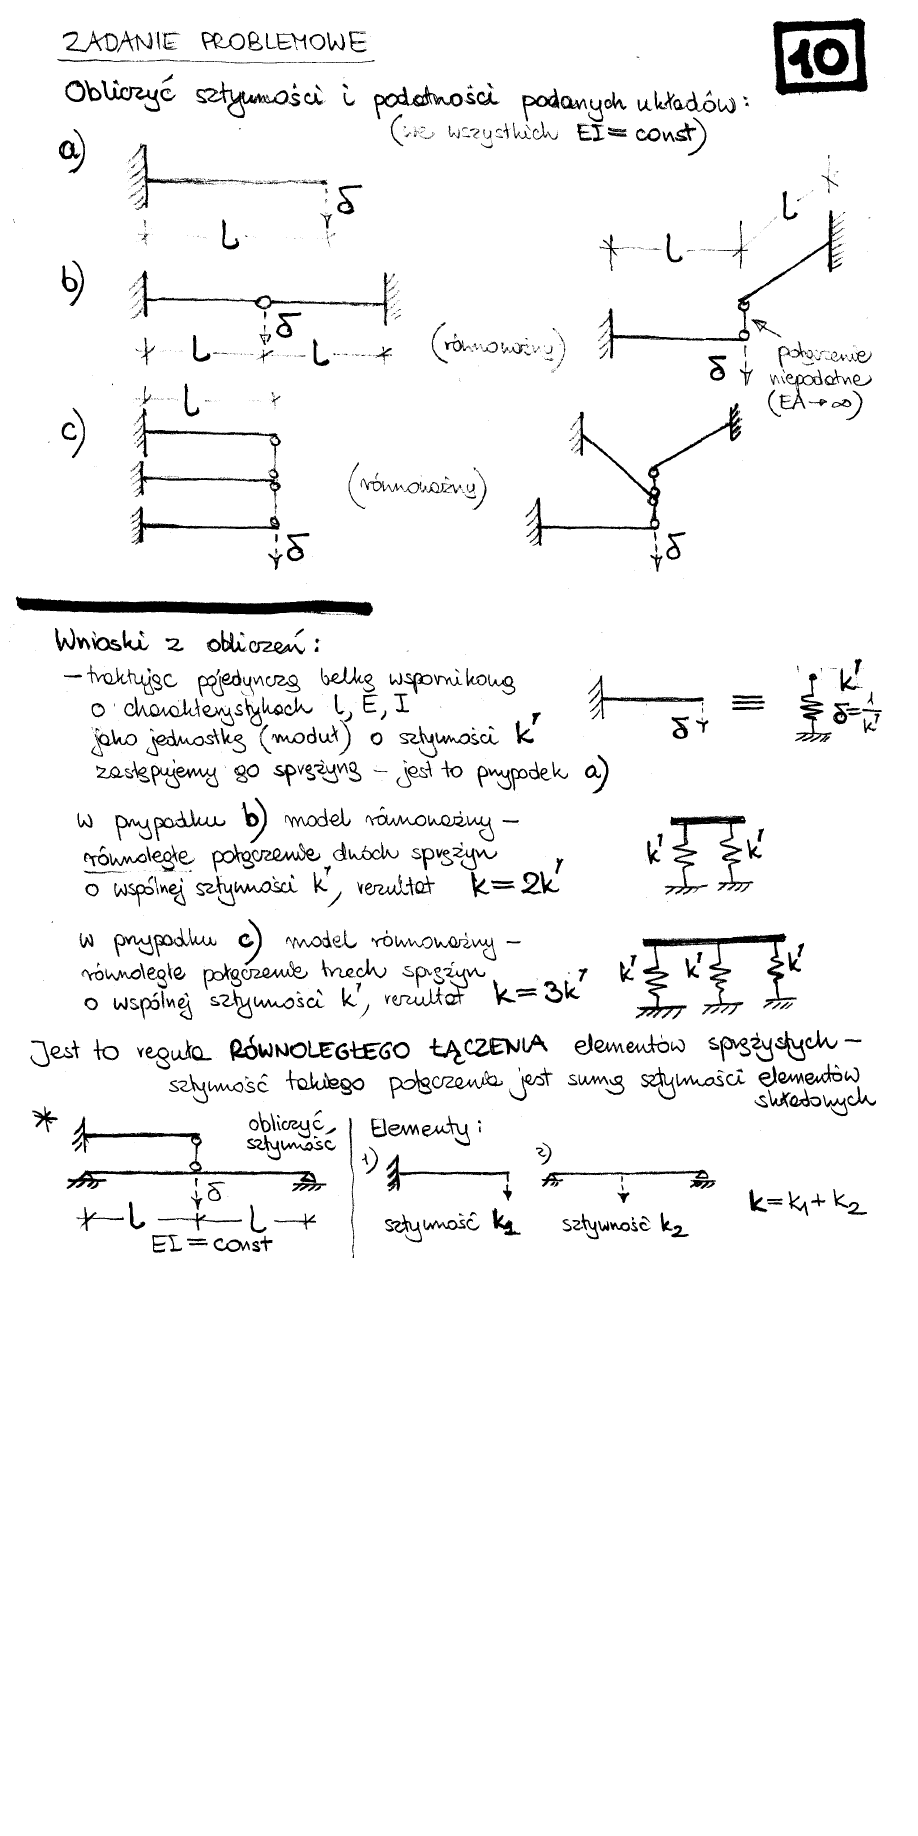 ZADANIE PROBLEMOWE
10
Obliczyć sztywności i podatności podanych układów:
(we wszystkich EI = const)
a)
δ
l
l
l
b)
δ
l l
(równoważny)
δ
połączenie
niepodatne
(EA → ∞)
l
c)
(równoważny)
δ
δ
Wnioski z obliczeń:
– traktując pojedynczą belkę wspornikową
o charakterystykach l, E, I
jako jednostkę (moduł) o sztywności k'
zastępujemy go sprężyną – jest to przypadek a)
δ ≡ k' δ = 1/k'
w przypadku b) model równoważny –
równoległe połączenie dwóch sprężyn
o wspólnej sztywności k', rezultat k = 2k'
k' k'
w przypadku c) model równoważny –
równoległe połączenie trzech sprężyn
o wspólnej sztywności k', rezultat k = 3k'
k' k' k'
Jest to reguła RÓWNOLEGŁEGO ŁĄCZENIA elementów sprężystych –
sztywność takiego połączenia jest sumą sztywności elementów
składowych
*
obliczyć
sztywność
δ
l l
EI = const
Elementy:
1)
sztywność k1
2)
sztywność k2
k = k1 + k2